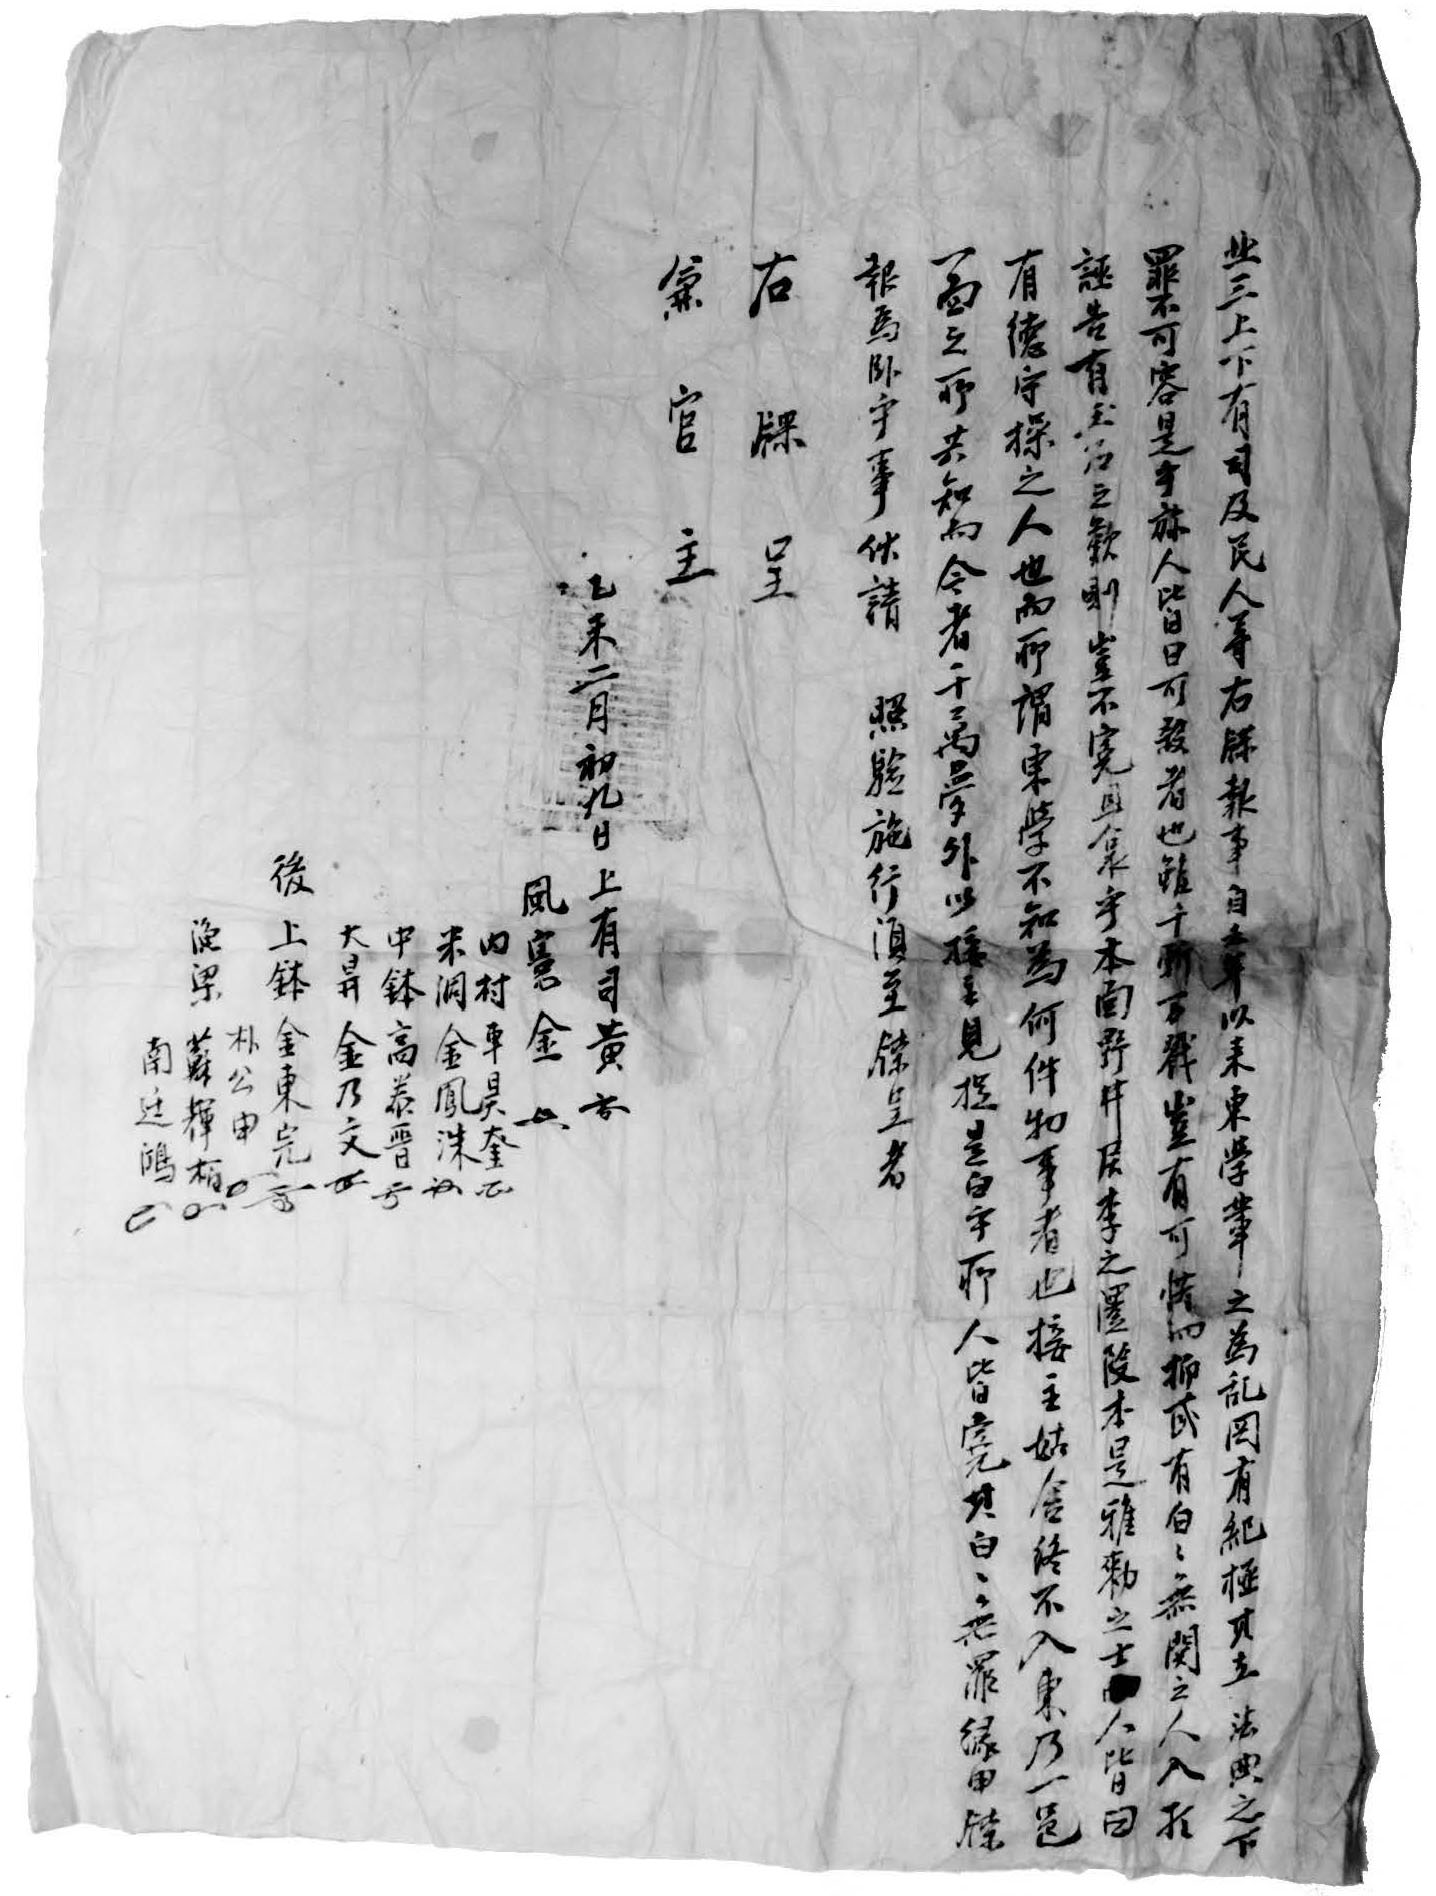 北三上下有司及民人等右牒報事自上年以來東學輩之爲乱罔有紀極其在 法典之下
罪不可容是乎旀人皆曰可殺者也雖千斬万戮豈有可惜而抑或有白ミ無関之人入於
誣告有玉石之歎則豈不寃且哀乎本面野井居李之 本是雅勅之士 人皆曰
有德守操之人也而所謂東學不知爲何件物事者也接主姑舍終不入東乃一邑
一面之所共知而今者千萬夢外以接主見捉是白乎所人皆寃其白ミ無罪緣由牒
報爲臥乎事伏請 照驗施行須至牒呈者
右牒呈
兼官主
乙未二月初九日上有司黃
風憲金
內村車昊奎
米洞金鳳洙
中鉢高泰晋
大昇金乃文
後上鉢金東完
朴公申
漁梁蘇輝栢
南廷鴻